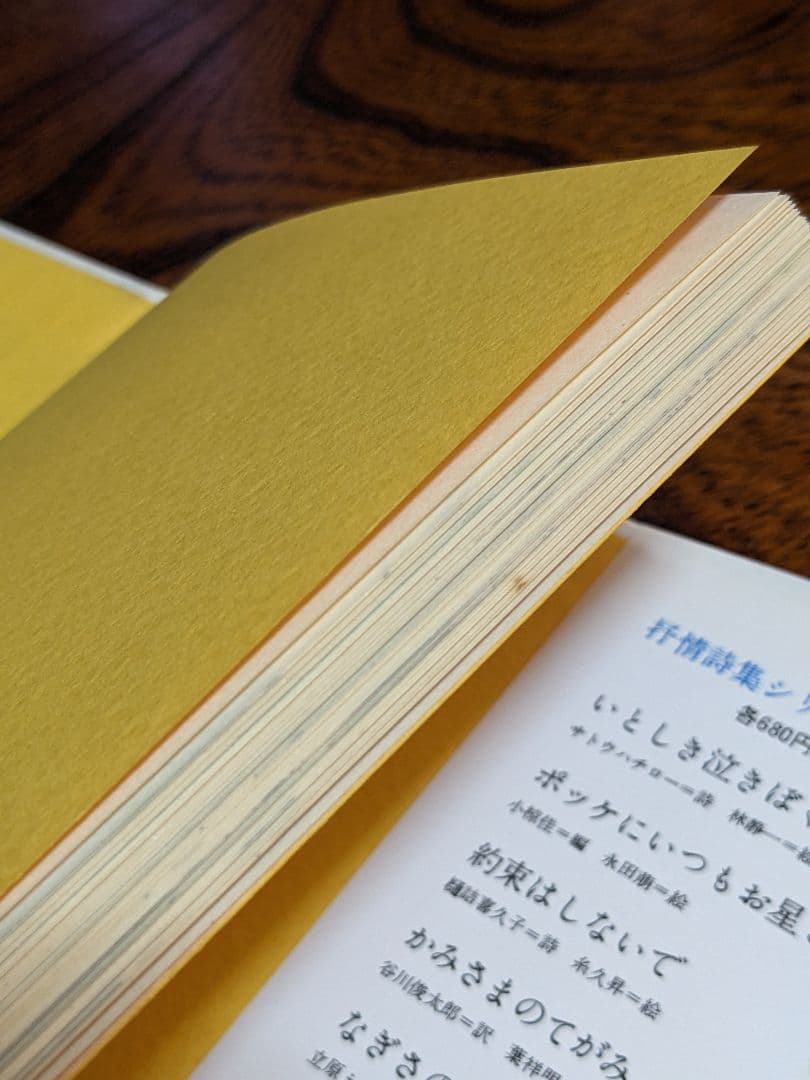 抒情詩集シリ
各680円
いとしき泣きぼ
サトウハチロー＝詩　林静一＝絵
ポッケにいつもお星さ
小椋佳＝編　永田萠＝絵
約束はしないで
樋詰喜久子＝詩　糸久昇＝絵
かみさまのてがみ
谷川俊太郎＝訳　葉祥明
なぎさの
立原